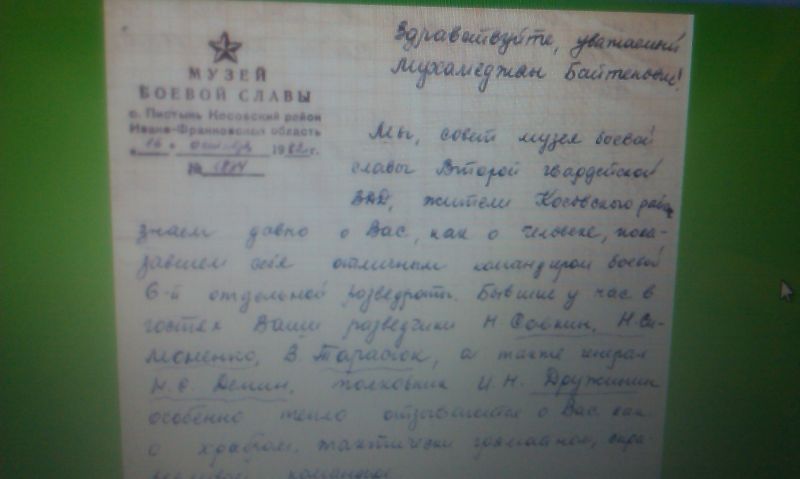 Здравствуйте, уважаемый
Мухамеджан
МУЗЕЙ
БОЕВОЙ СЛАВЫ
с. Пистынь Косовский район
Ивано-Франковская область
"16" октября 1982г.
№
Мы, совет музея боевой
славы Второй гвардейской
ВДД, жители Косовского района
знаем давно о Вас, как о человеке, пока-
завшем себя отличным командиром боевой
6-й отдельной разведроты. Бывшие у нас в
гостях Ваши разведчики Н. Собкин, Н. Си-
моненко, В. Тарасюк, а также генерал
Н. С. Демин, полковник И. Н. Дружинин
особенно тепло отзываются о Вас как
о храбром, тактически грамотном, спра-
командире.